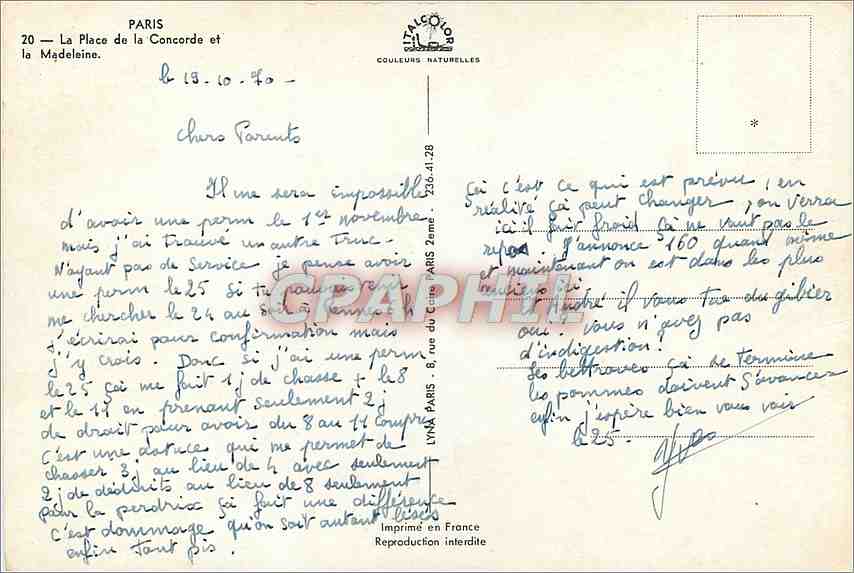 PARIS
20 — La Place de la Concorde et
la Madeleine.
ITALCOLOR
COULEURS NATURELLES
le 19-10-70-
Chers Parents
Il me sera impossible
d'avoir une perm le 1er novembre
mais j'ai trouvé un autre truc-
N'ayant pas de Service je pense avoir
une perm le 25 Si tu pouvais venir
me chercher le 24 au soir à
j'écrirai pour confirmation mais
j'y crois. Donc si j'ai une perm
le 25 ça me fait 1 j de chasse + le 8
et le 11 en prenant seulement 2 j
de droit pour avoir du 8 au 11 compris
C'est une astuce qui me permet de
chasser 3 j au lieu de 4 avec seulement
2 j de déduits au lieu de 8 seulement
pour la perdrix ça fait une différence
C'est dommage qu'on soit autant
enfin tant pis.
LYNA PARIS - 8, rue du Caire PARIS 2eme - 236-41-28
Imprimé en France
Reproduction interdite
*
Ça c'est ce qui est prévu, en
réalité ça peut changer, on verra
ici il fait froid ça ne vaut pas le
J'annonce 160 quand même
et maintenant on est dans les plus
ici
Et André il vous tue du gibier
oui. Vous n'avez pas
d'indigestion.
Les betteraves ça se termine
les pommes doivent s'avancer
enfin j'espère bien vous voir
le 25-
Yves
CPAPHIL